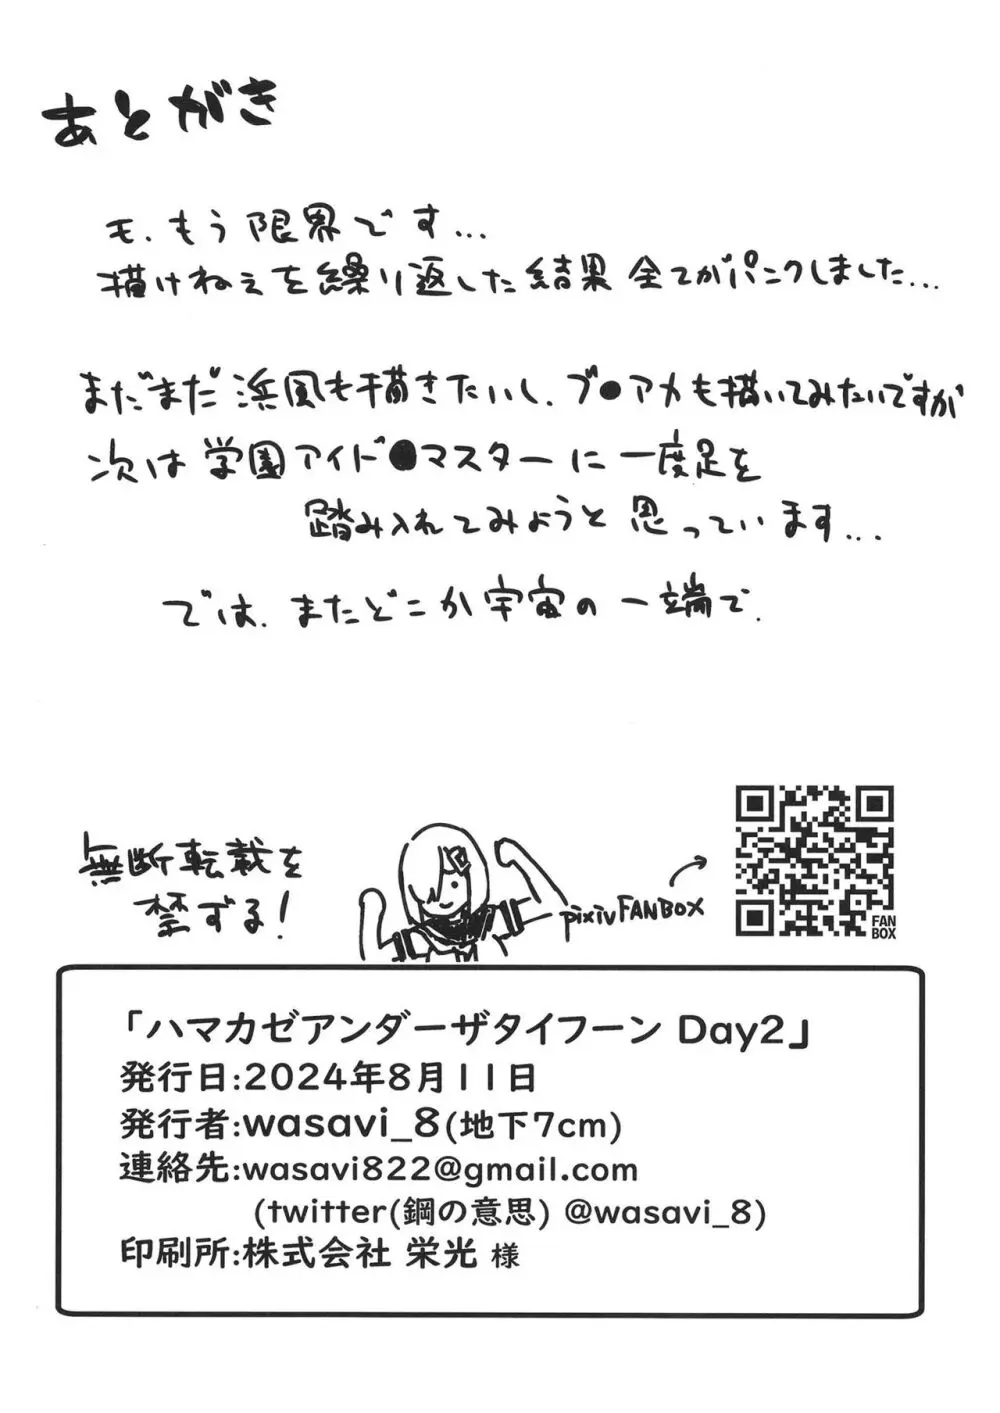 あとがき
モ、もう限界です...
描けねぇを繰り返した結果 全てがパンクしました...
まだまだ浜風も描きたいし、ブ●アカも描いてみたいですが
次は学園アイド●マスターに一度足を
踏み入れてみようと思っています...
では、またどこか宇宙の一端で.
無断転載を
禁ずる!
pixivFANBOX
FAN
BOX
「ハマカゼアンダーザタイフーン Day2」
発行日:2024年8月11日
発行者:wasavi_8(地下7cm)
連絡先:wasavi822@gmail.com
(twitter(鋼の意思) @wasavi_8)
印刷所:株式会社 栄光 様